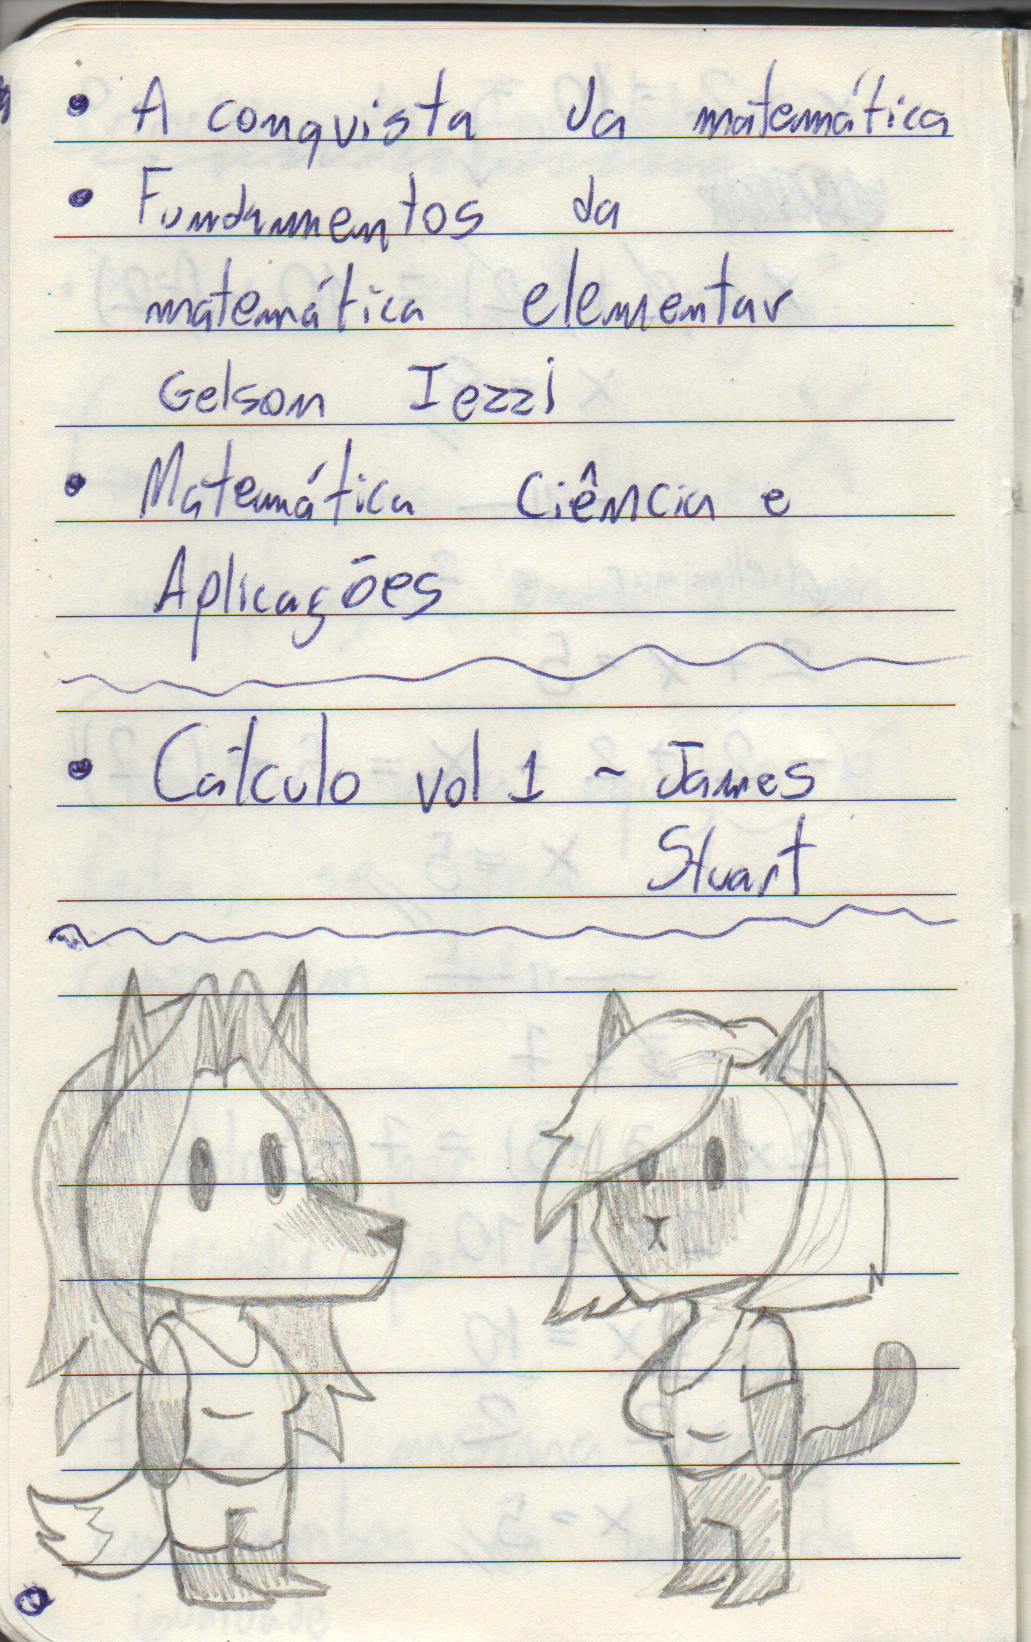 • A conquista da matemática
• Fundamentos da
matemática elementar
Gelson Iezzi
• Matemática Ciência e
Aplicações
• Cálculo vol 1 ~ James
Stuart